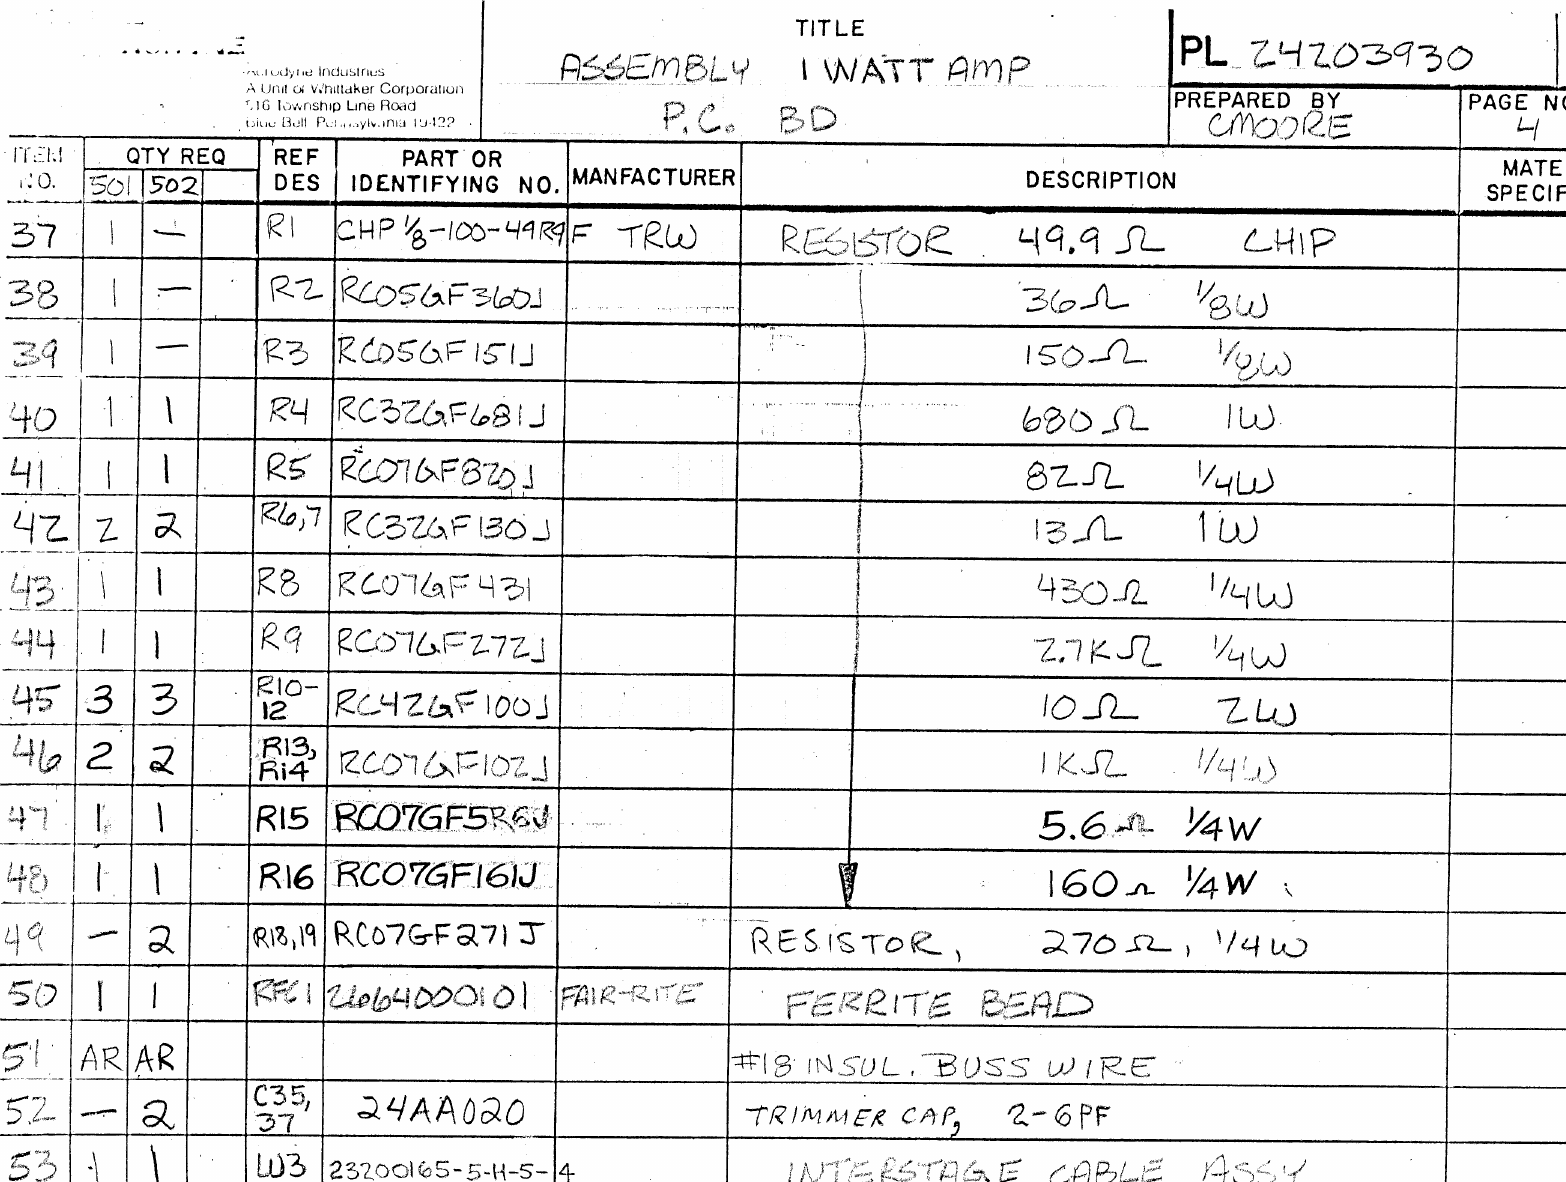 TITLE
ASSEMBLY 1 WATT AMP
P.C. BD
PL 24203930
Industries
A Unit of Whittaker Corporation
Township Line Road
Blue Bell Pennsylvania 19422
PREPARED BY
CMOORE
PAGE NO
4
ITEM NO. QTY REQ REF DES PART OR IDENTIFYING NO. MANFACTURER DESCRIPTION MATE SPECIF
501 502
37 1 — R1 CHP 1/8-100-49R9F TRW RESISTOR 49.9 Ω CHIP
38 1 — R2 RC05GF360J 36Ω 1/8W
39 1 — R3 RC05GF151J 150Ω 1/8W
40 1 1 R4 RC32GF681J 680Ω 1W
41 1 1 R5 RC07GF820J 82Ω 1/4W
42 2 2 R6,7 RC32GF130J 13Ω 1W
43 1 1 R8 RC07GF431 430Ω 1/4W
44 1 1 R9 RC07GF272J 2.7KΩ 1/4W
45 3 3 R10-12 RC42GF100J 10Ω 2W
46 2 2 R13, R14 RC07GF102J 1KΩ 1/4W
47 1 1 R15 RC07GF5R6J 5.6Ω 1/4W
48 1 1 R16 RC07GF161J 160Ω 1/4W
49 — 2 R18,19 RC07GF271J RESISTOR, 270Ω, 1/4W
50 1 1 RFC1 2664000101 FAIR-RITE FERRITE BEAD
51 AR AR #18 INSUL. BUSS WIRE
52 — 2 C35, 37 24AA020 TRIMMER CAP, 2-6PF
53 1 1 W3 23200165-5-H-5-14 INTERSTAGE CABLE ASSY